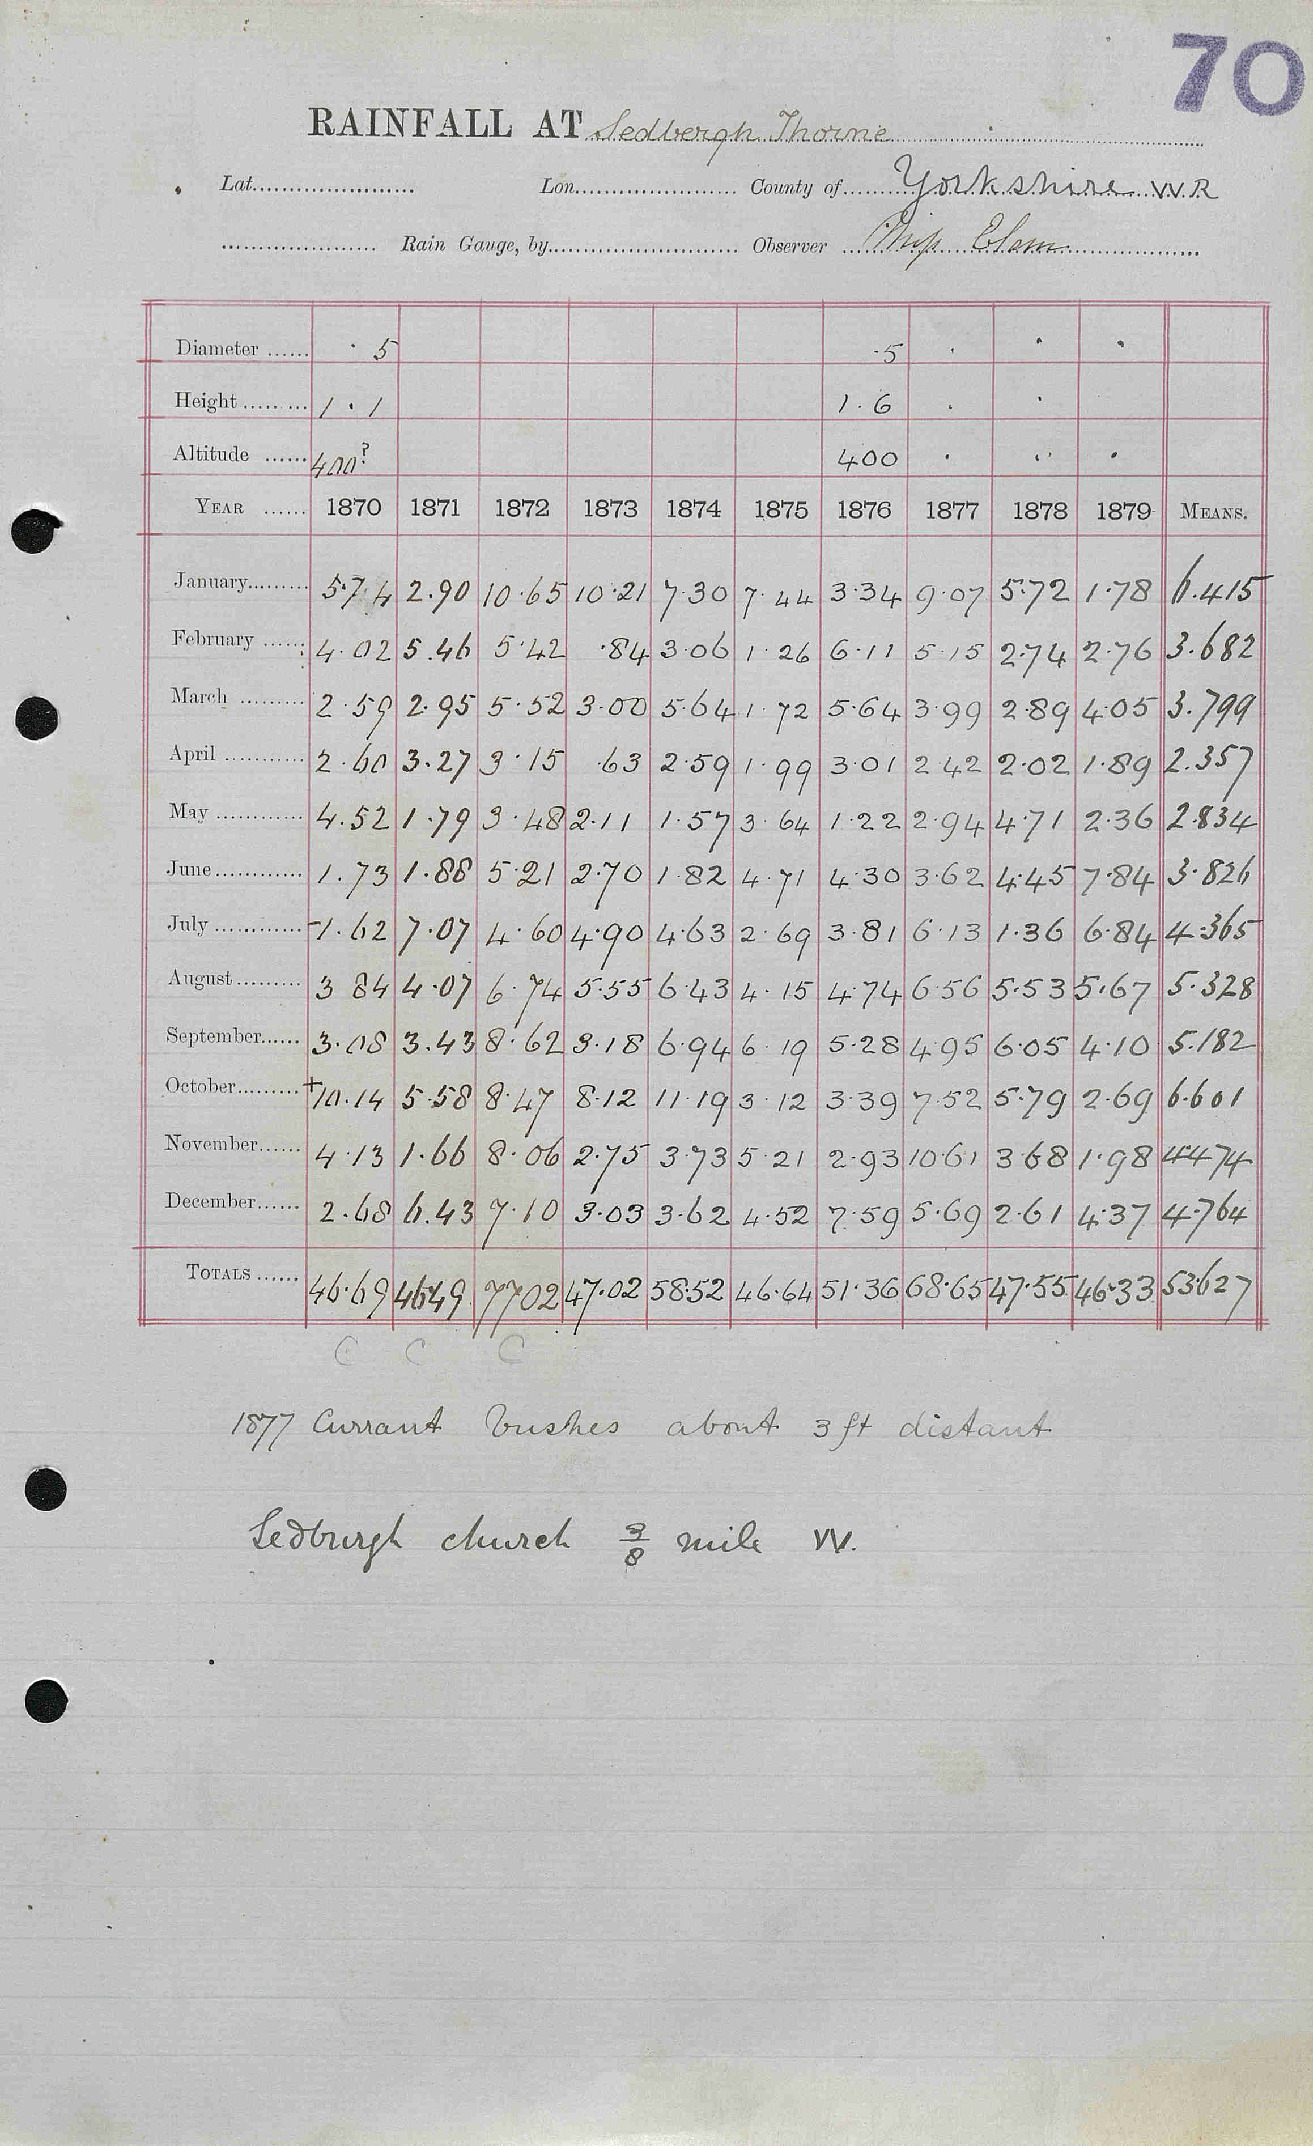 70
RAINFALL AT Sedbergh Thorne
Lat. Lon. County of Yorkshire W.R
Rain Gauge, by Observer Miss Elam
Diameter ...... · 5 ·5 · · ·
Height ......... 1 · 1 1·6 · ·
Altitude ...... 400? 400 · · ·
YEAR ...... 1870 1871 1872 1873 1874 1875 1876 1877 1878 1879 MEANS.
January......... 5·74 2.90 10·65 10·21 7·30 7·44 3·34 9·07 5·72 1·78 6.415
February ...... 4·02 5.46 5·42 ·84 3·06 1·26 6·11 5·15 2·74 2·76 3.682
March ......... 2·59 2·95 5·52 3·00 5·64 1·72 5·64 3·99 2·89 4·05 3.799
April ............ 2·60 3·27 3·15 ·63 2·59 1·99 3·01 2·42 2·02 1·89 2.357
May ............ 4.52 1·79 3·48 2·11 1·57 3·64 1·22 2·94 4·71 2·36 2.834
June............ 1.73 1·88 5·21 2·70 1·82 4·71 4·30 3·62 4·45 7·84 3·826
July ............ -1.62 7·07 4·60 4·90 4·63 2·69 3·81 6·13 1·36 6·84 4·365
August......... 3 84 4·07 6·74 5·55 6·43 4·15 4·74 6·56 5·53 5·67 5·328
September...... 3·08 3.43 8·62 3·18 6·94 6·19 5·28 4·95 6·05 4·10 5.182
October......... +10.14 5·58 8·47 8·12 11·19 3·12 3·39 7·52 5·79 2·69 6·601
November...... 4·13 1·66 8·06 2·75 3·73 5·21 2·93 10·61 3·68 1·98 4·474
December...... 2·68 6.43 7·10 3·03 3·62 4·52 7·59 5·69 2·61 4·37 4·764
TOTALS ...... 46·69 46·49 77·02 47·02 58·52 46·64 51·36 68·65 47·55 46·33 53·627
C C C
1877 Currant bushes about 3 ft distant
Sedburgh church 3/8 mile W.